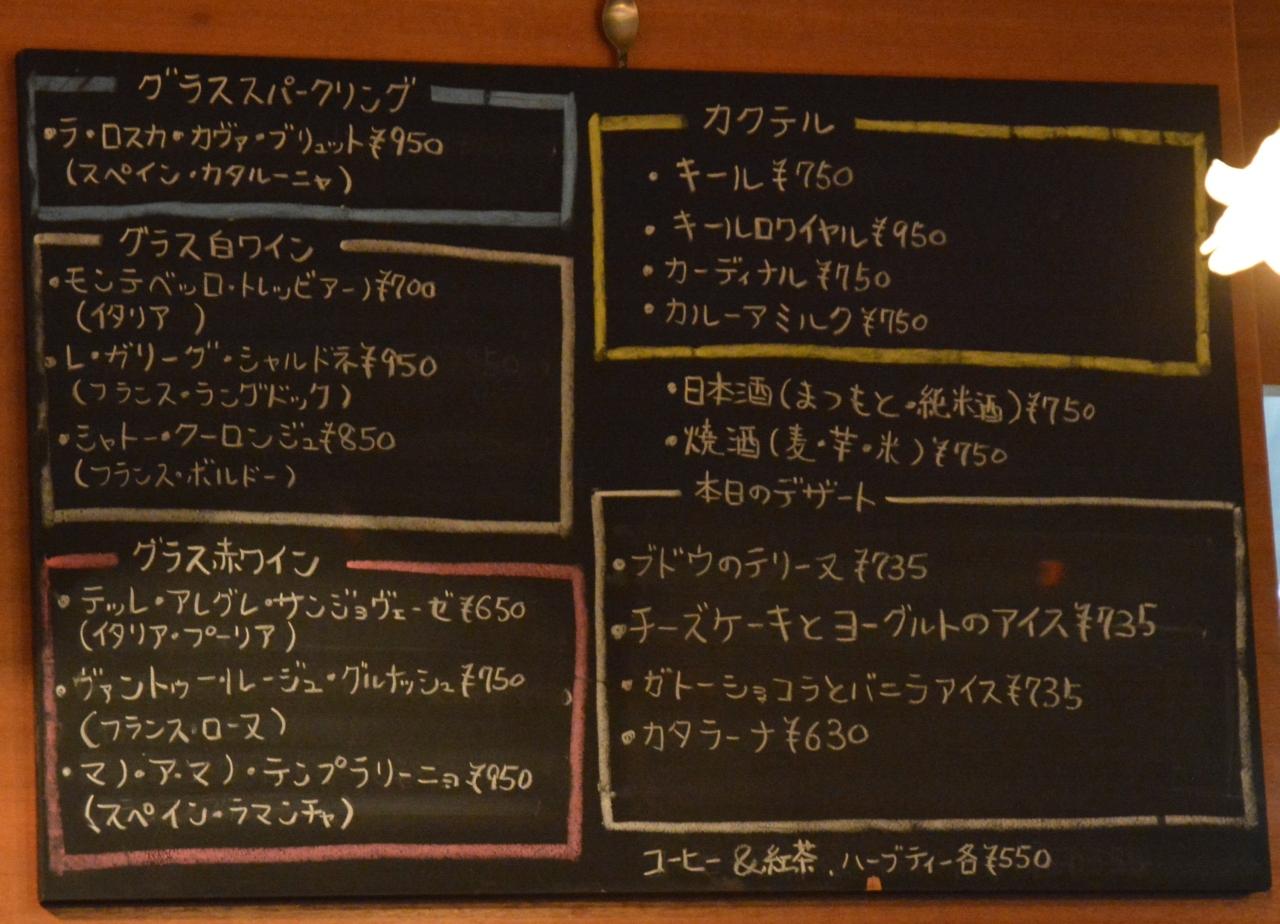 グラススパークリング
・ラ・ロスカ・カヴァ・ブリュット¥950
(スペイン・カタルーニャ)
グラス白ワイン
・モンテベッロ・トレッビアーノ¥700
(イタリア )
・レ・ガリーグ・シャルドネ¥950
(フランス・ラングドック)
・シャトー・クーロンジュ¥850
(フランス・ボルドー)
グラス赤ワイン
・テッレ・アレグレ・サンジョヴェーゼ¥650
(イタリア・プーリア)
・ヴァントゥー・ルージュ・グルナッシュ¥750
(フランス・ローヌ)
・マノ・ア・マノ・テンプラリーニョ¥950
(スペイン・ラマンチャ)
カクテル
・キール¥750
・キールロワイヤル¥950
・カーディナル¥750
・カルーアミルク¥750
・日本酒(まつもと・純米酒)¥750
・焼酒(麦・芋・米)¥750
本日のデザート
・ブドウのテリーヌ¥735
・チーズケーキとヨーグルトのアイス¥735
・ガトーショコラとバニラアイス¥735
・カタラーナ¥630
コーヒー&紅茶、ハーブティー各¥550